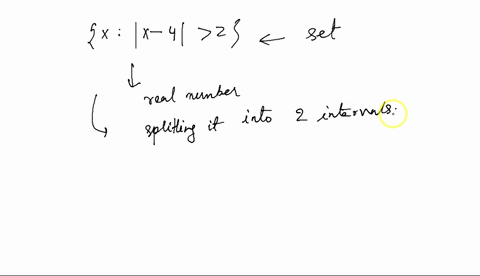 {x : |x-4| >2} ← set
↓
real number
↳ splitling it into 2 intervals: